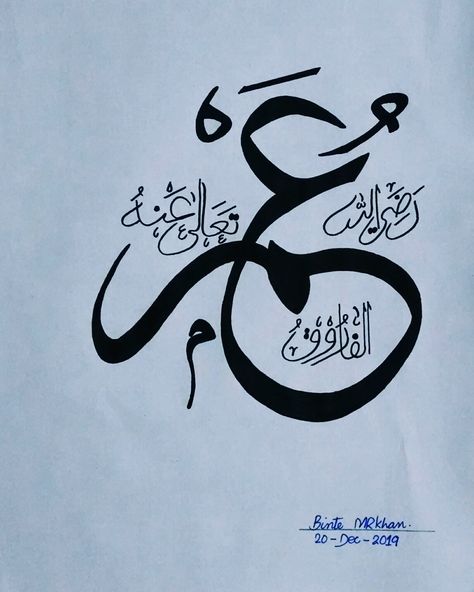 عُمَر
رَضِيَ اللّٰه
تَعَالٰی عَنْهُ
الفَارُوْق
Binte MRkhan.
20-Dec-2019